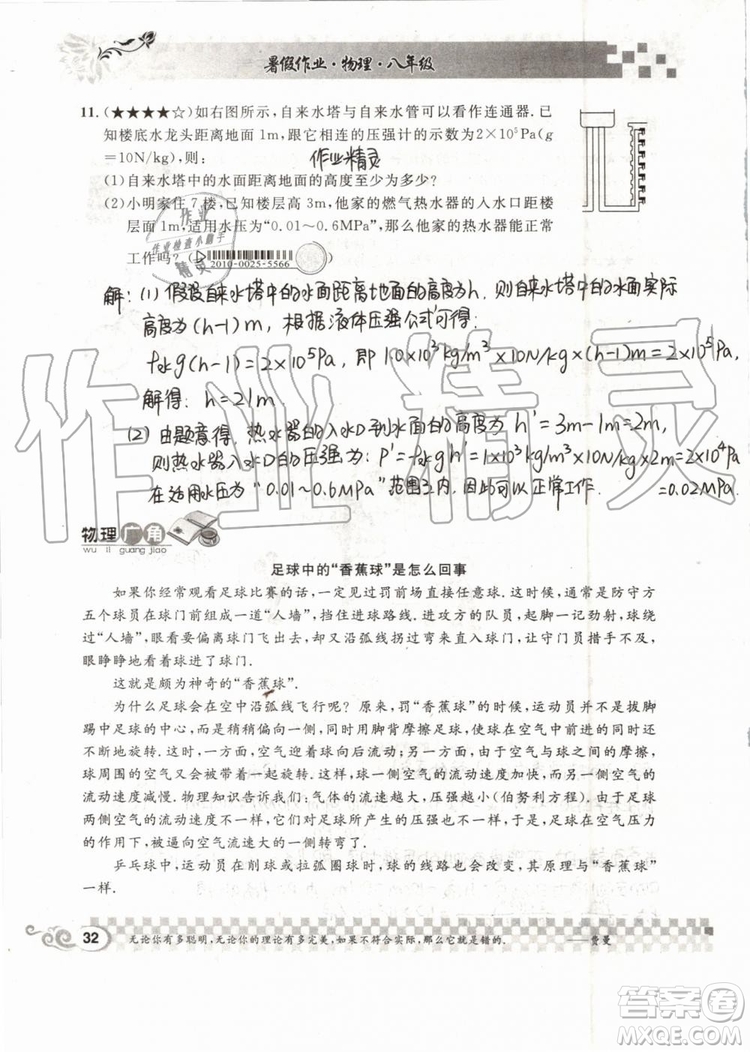 暑假作业·物理·八年级
11.(★★★★☆)如右图所示,自来水塔与自来水管可以看作连通器.已
知楼底水龙头距离地面1m,跟它相连的压强计的示数为2×10⁵Pa(g
=10N/kg),则:
作业精灵
(1)自来水塔中的水面距离地面的高度至少为多少?
(2)小明家住7楼,已知楼层高3m,他家的热水器的入水口距楼
层面1m,适用水压为“0.01~0.6MPa”,那么他家的热水器能正常
工作吗?(
2010-0025-5566
)
作业
作业检查小助手
精灵
解:(1)假设自来水塔中的水面距离地面的高度为h,则自来水塔的水面实际
高度为(h-1)m,根据液体压强公式可得:
ρ水g(h-1)=2×10⁵Pa,即1.0×10³kg/m³×10N/kg×(h-1)m=2×10⁵Pa,
解得:h=21m.
(2)由题意得,热水器的入水口到水面的高度为h'=3m-1m=2m,
则热水器入水口的压强为:P'=ρ水gh'=1×10³kg/m³×10N/kg×2m=2×10⁴Pa
=0.02MPa
在适用水压为“0.01~0.6MPa”范围之内,因此可以正常工作.
作业精灵
物理广角
wu li guang jiao
足球中的“香蕉球”是怎么回事
如果你经常观看足球比赛的话,一定见过罚前场直接任意球.这时候,通常是防守方
五个球员在球门前组成一道“人墙”,挡住进球路线.进攻方的队员,起脚一记劲射,球绕
过“人墙”,眼看要偏离球门飞出去,却又沿弧线拐过弯来直入球门,让守门员措手不及,
眼睁睁地看着球进了球门.
这就是颇为神奇的“香蕉球”.
为什么足球会在空中沿弧线飞行呢?原来,罚“香蕉球”的时候,运动员并不是拔脚
踢中足球的中心,而是稍稍偏向一侧,同时用脚背摩擦足球,使球在空气中前进的同时还
不断地旋转.这时,一方面空气迎着球向后流动;另一方面,由于空气与球之间的摩擦,
球周围的空气又会被带着一起旋转.这样,球一侧空气的流动速度加快,而另一侧空气的
流动速度减慢.物理知识告诉我们:气体的流速越大,压强越小(伯努利方程).由于足球
两侧空气的流动速度不一样,它们对足球所产生的压强也不一样,于是,足球在空气压力
的作用下,被逼向空气流速大的一侧转弯了.
乒乓球中,运动员在削球或拉弧圈球时,球的线路也会改变,其原理与“香蕉球”
一样.
32
无论你有多聪明,无论你的理论有多完美,如果不符合实际,那么它就是错的.
——费曼
答案圈
MXQE.COM